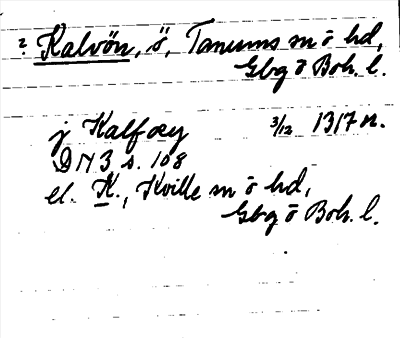 ? Kalvön, ö, Tanums sn o hd,
Gbg o Boh. l.
j Kalfœy 3/12 1317 n.
DN 3 s. 108
el. K., Kville sn o hd,
Gbg o Boh. l.